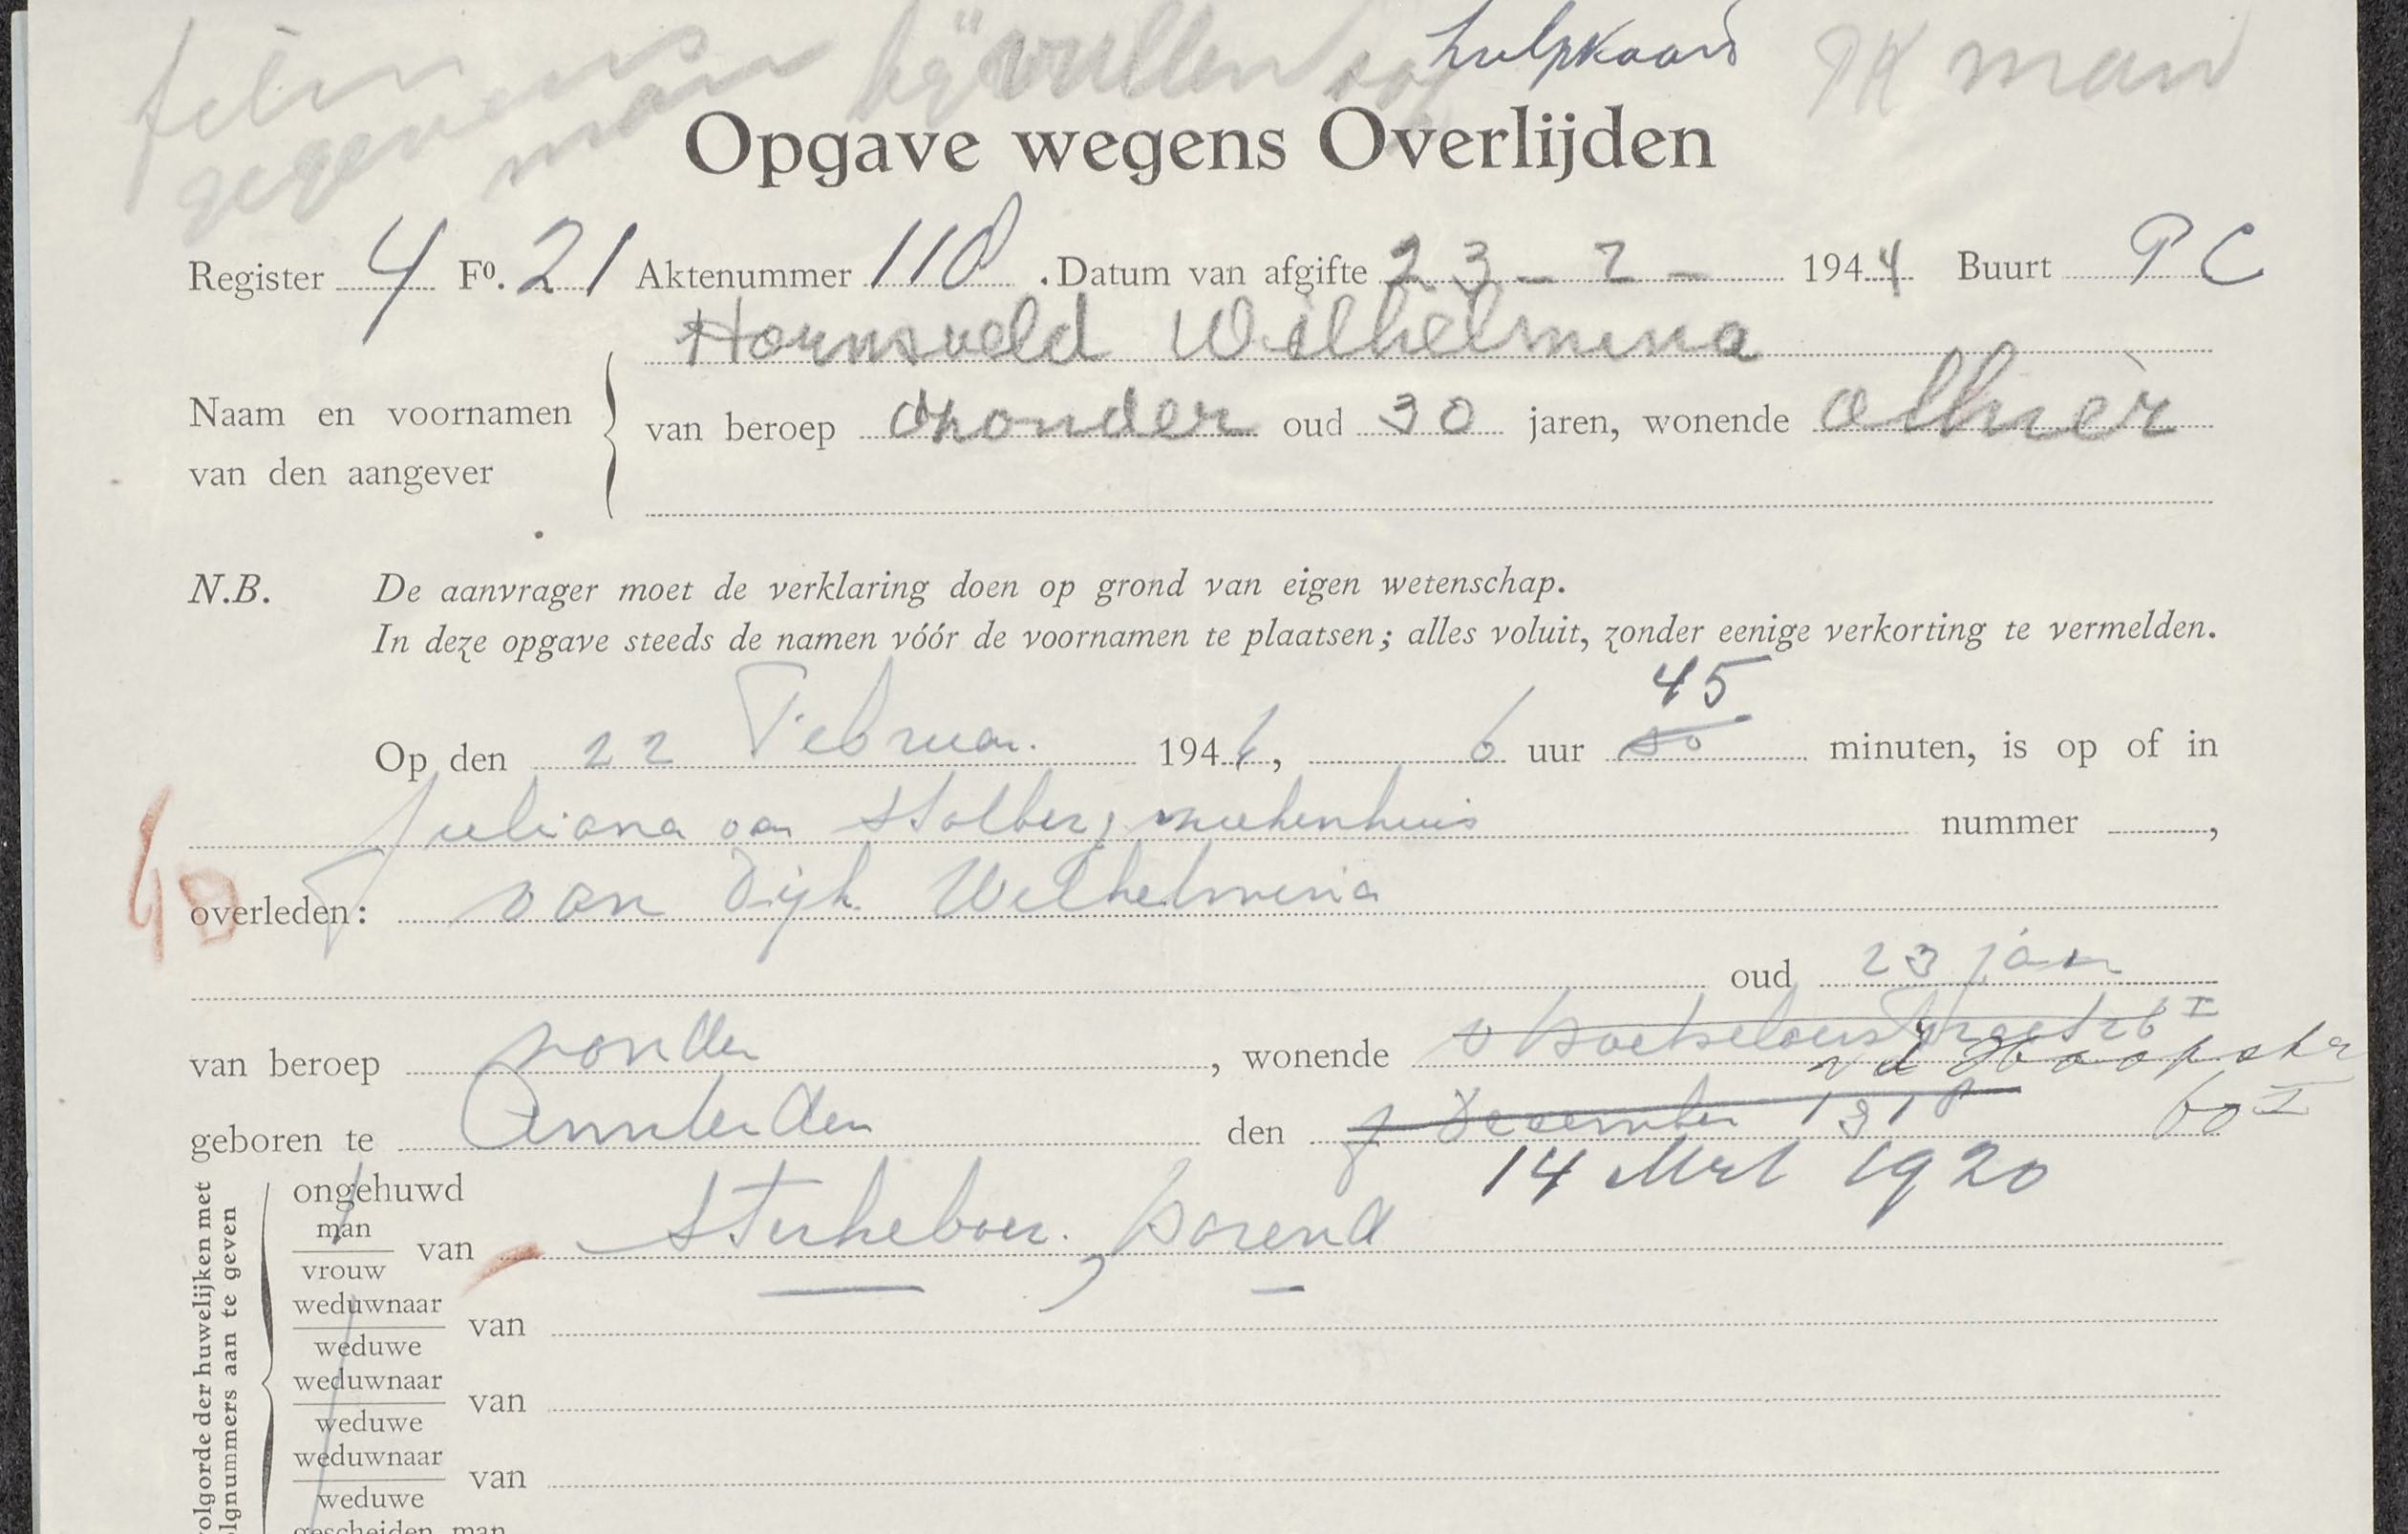 gegevens man bijvullen op hulpkaart PK man
Opgave wegens Overlijden
Register 4 Fo. 21 Aktenummer 118 . Datum van afgifte 23 - 2 - 1944 Buurt PC
Hornsveld Wilhelmina
Naam en voornamen
van den aangever
van beroep zonder oud 30 jaren, wonende alhier
N.B. De aanvrager moet de verklaring doen op grond van eigen wetenschap.
In deze opgave steeds de namen vóór de voornamen te plaatsen; alles voluit, zonder eenige verkorting te vermelden.
45
Op den 22 Februar. 1944, 6 uur 50 minuten, is op of in
Juliana van Stolberg ziekenhuis nummer ,
overleden: van Dijk Wilhelmina
oud 23 jaar
van beroep zonder , wonende
60 I
geboren te Amsterdam den 7 December 1918
14 Mrt 1920
ongehuwd
man
vrouw
van Sterkeboer. Barend
weduwnaar
weduwe
van
weduwnaar
weduwe
van
weduwnaar
weduwe
van
gescheiden man
olgorde der huwelijken met
olgnummers aan te geven